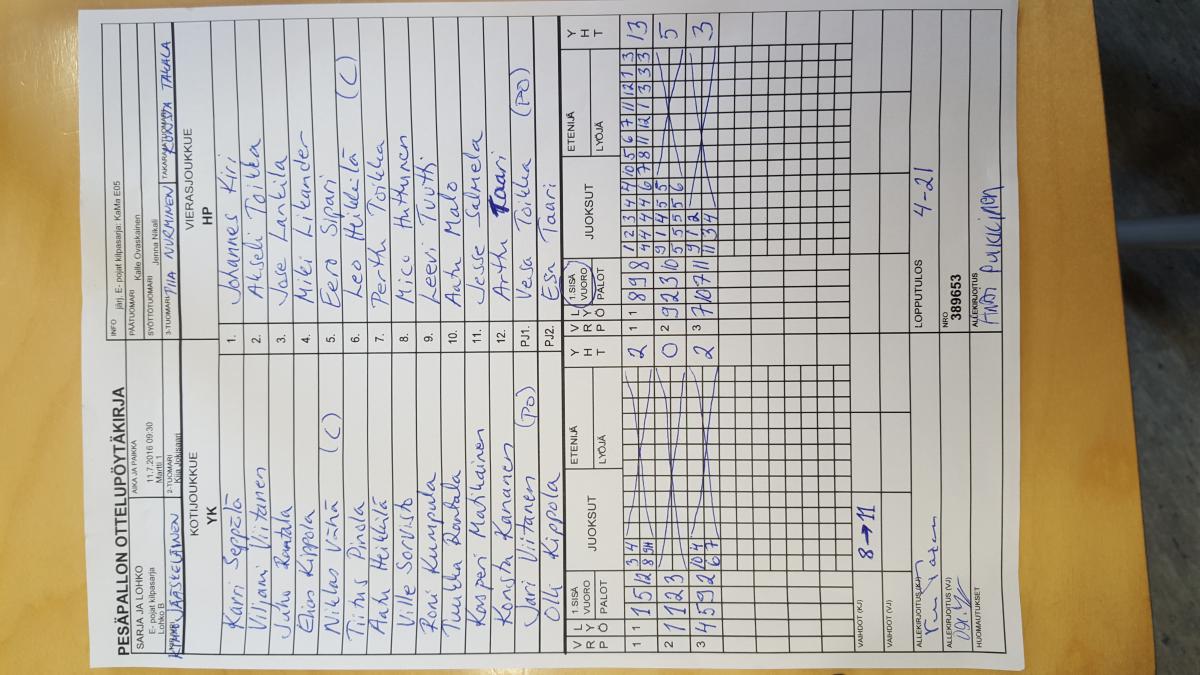 PESÄPALLON OTTELUPÖYTÄKIRJA
SARJA JA LOHKO
E- pojat kilpasarja
Lohko B
AIKA JA PAIKKA
11.7.2016 09:30
Martti 1
2-TUOMARI
Kiia Jokisaari
JÄÄSKELÄINEN
INFO järj. E- pojat kilpasarja: KaMa E05
PÄÄTUOMARI Kalle Ovaskainen
SYÖTTÖTUOMARI Jenna Nikali
3-TUOMARI PIIA NURMINEN TAKARAJATUOMARI RONJA TAKALA
KOTIJOUKKUE
YK
VIERASJOUKKUE
HP
Karri Seppälä 1. Johannes Kiri
Viljami Viitanen 2. Akseli Toikka
Juho Rantala 3. Jase Lankila
Eino Kippola 4. Miki Likander
Niklas Vähä (C) 5. Eero Sipari
Tiitus Pirilä 6. Leo Heikkilä (C)
Aatu Heikkilä 7. Perttu Toikka
Ville Sorvisto 8. Mico Huttunen
Roni Kumpula 9. Leevi Tutti
Tuukka Rantala 10. Aatu Malo
Kasperi Matikainen 11. Jesse Selmela
Konsta Kananen 12. Arttu Taari
Jari Viitanen (PO) PJ1. Vesa Toikka (PO)
Olli Kippola PJ2. Esa Taari
V R P L Y Ö 1.SISÄ VUORO PALOT JUOKSUT ETENIJÄ LYÖJÄ Y H T
V R P L Y Ö 1.SISÄ VUORO PALOT JUOKSUT ETENIJÄ LYÖJÄ Y H T
1 1 1 5 12 3 4 2
8 9H
2 1 1 2 3 0
3 4 5 9 2 10 4 2
6 7
1 1 8 9 8 1 2 3 4 4 10 5 6 7 11 12 1 3 13
4 4 4 4 6 7 8 11 12 1 3 3 3
2 9 2 3 10 9 1 4 5 5 5
5 5 5 5 6
3 7 10 7 11 9 12 3
11 3 4
VAIHDOT (KJ) 8→11
VAIHDOT (VJ)
ALLEKIRJOITUS (KJ)
LOPPUTULOS 4-21
ALLEKIRJOITUS (VJ)
NRO
389653
HUOMAUTUKSET
ALLEKIRJOITUS